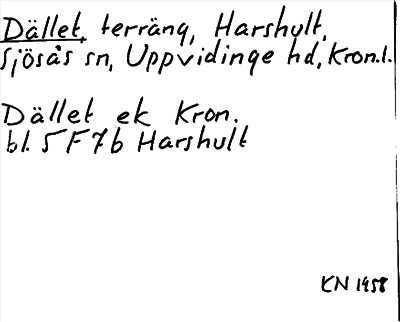 Dället, terräng, Harshult,
Sjösås sn, Uppvidinge hd, Kron.l.
Dället ek Kron.
bl. 5F7b Harshult
KN 1958